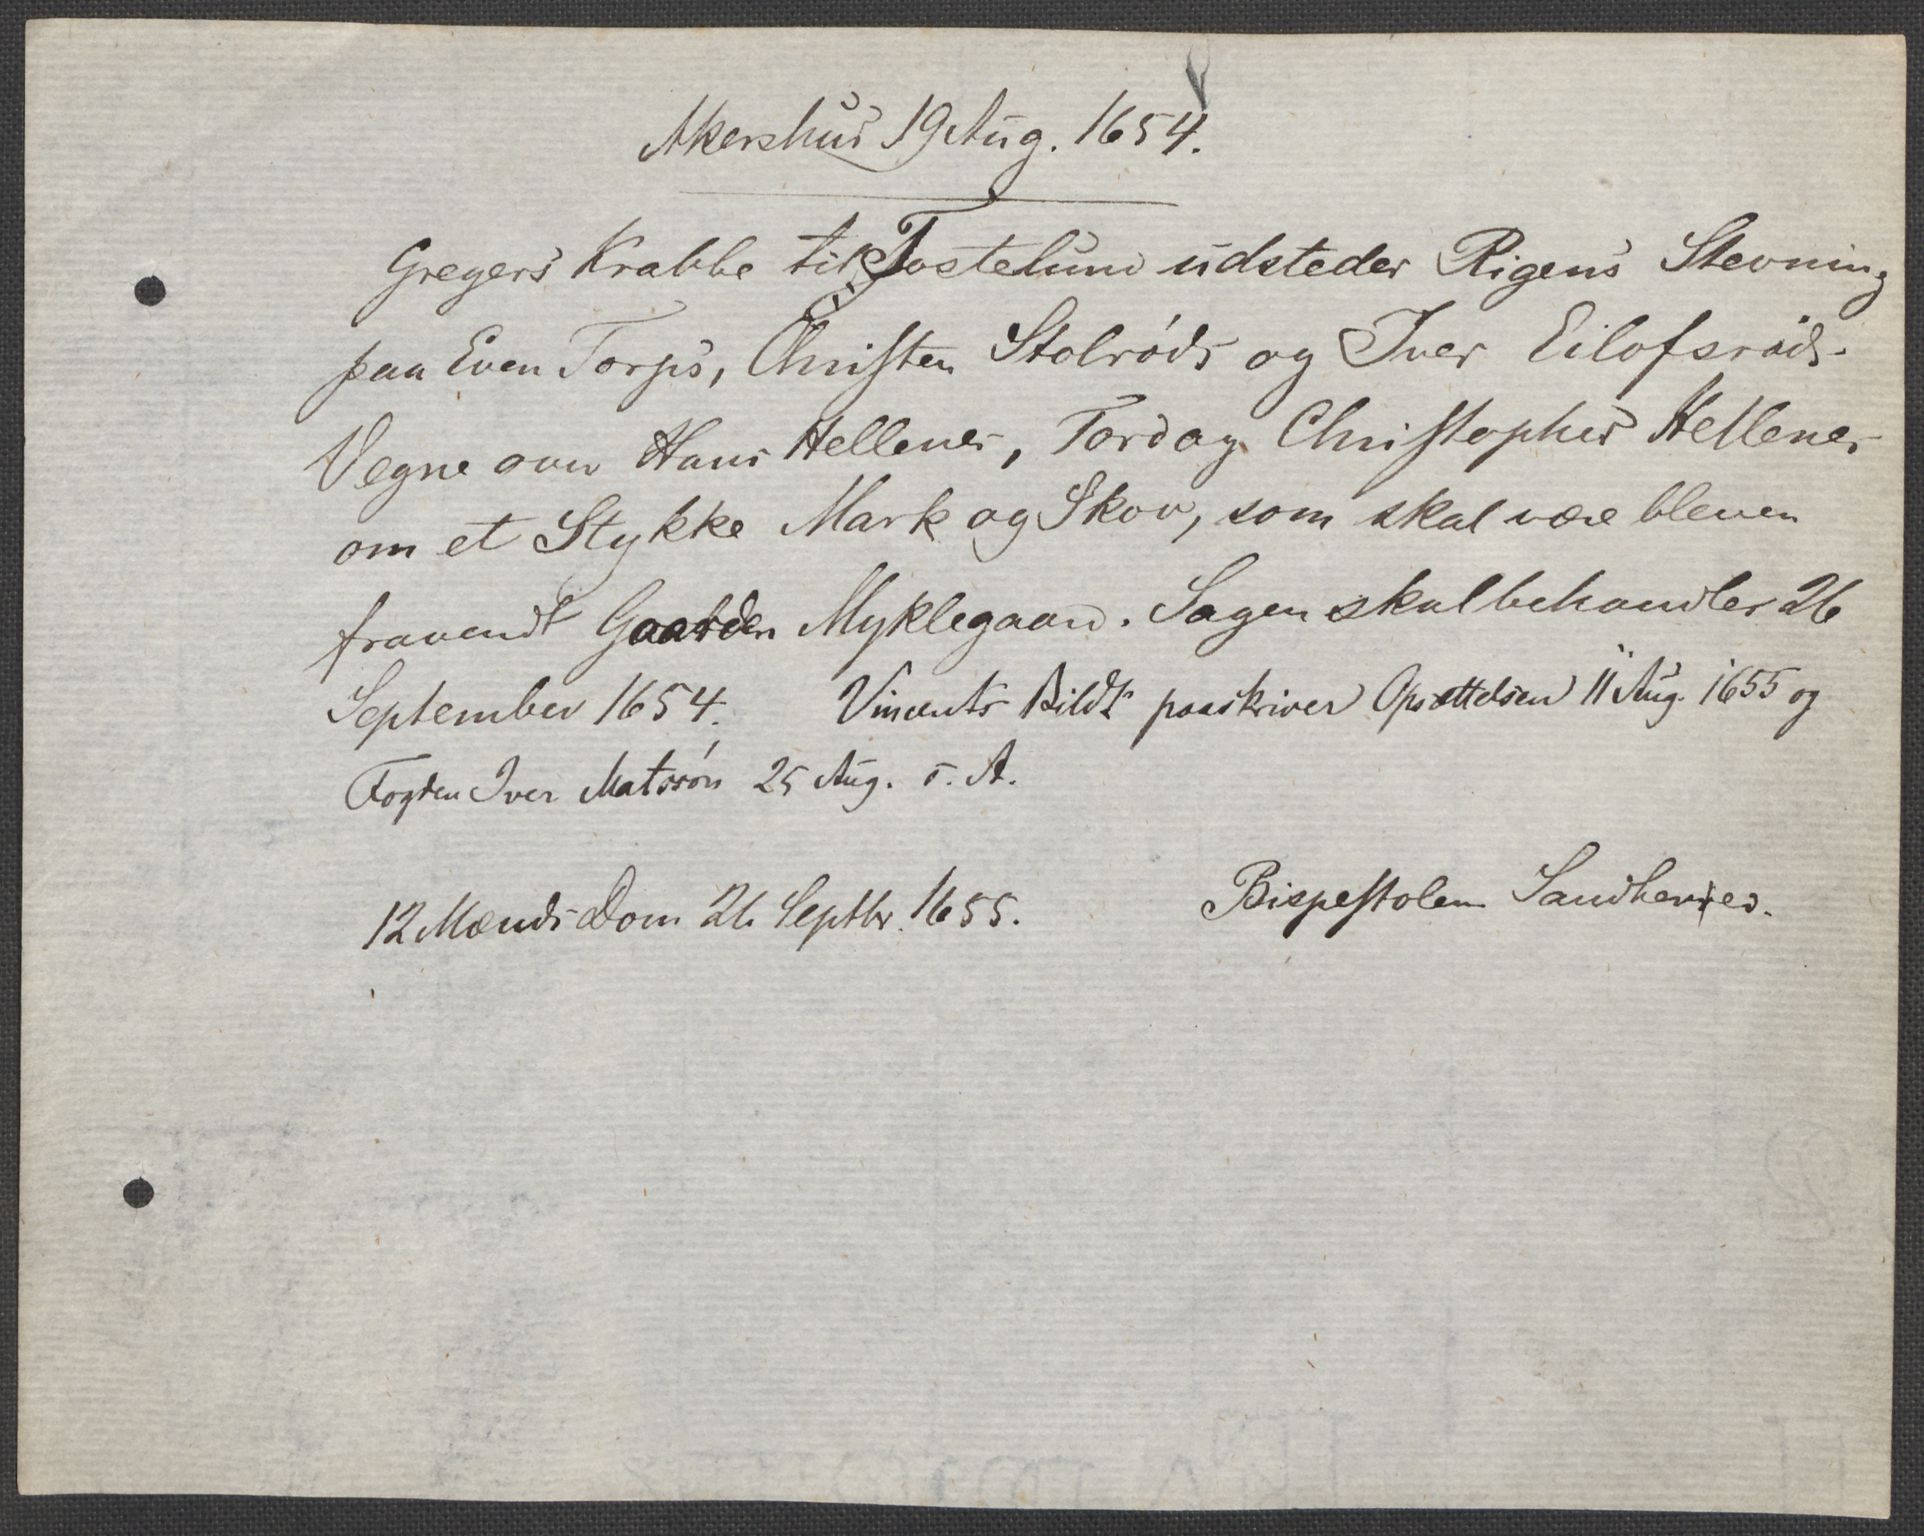 Akershus 19 Aug. 1654.
Gregers Krabbe til Tostelund udsteder Rigens Stevning
paa Even Torps, Christen Stolröds og Iver Eilofsröds
Vegne over Hans Hellenes, Tord og Christopher Hellenes
om et Stykke Mark og Skov, som skal være bleven
fravendt Gaarden Myklegaard. Sagen skal behandles 26
September 1654. Vincents Bildt paaskriver Opsættelsen 11 Aug. 1655 og
Fogden Iver Matssön 25 Aug. s. A.
12 Mænds Dom 26 Septbr. 1655.
Bispestolen Sandhervies.